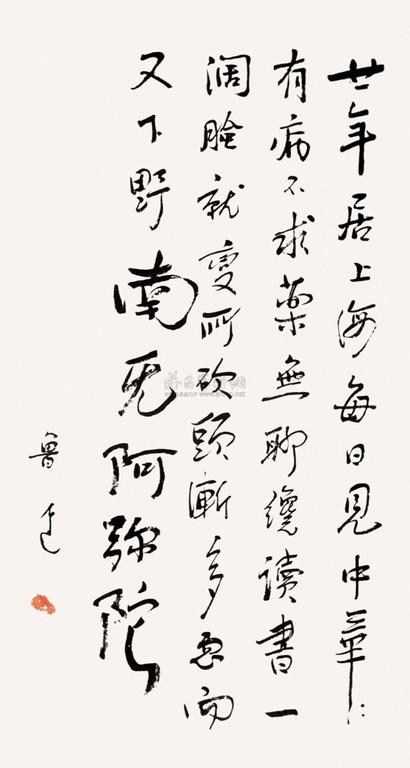 廿年居上海每日見中華
有病不求藥無聊纔讀書一
阔臉就變所砍頭漸多忽而
又下野南无阿弥陀
魯迅